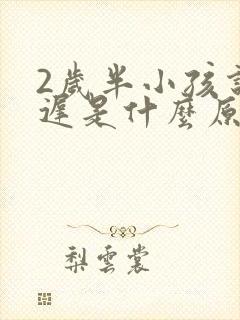 2歲半小孩
遲是什麼原
梨雲裳